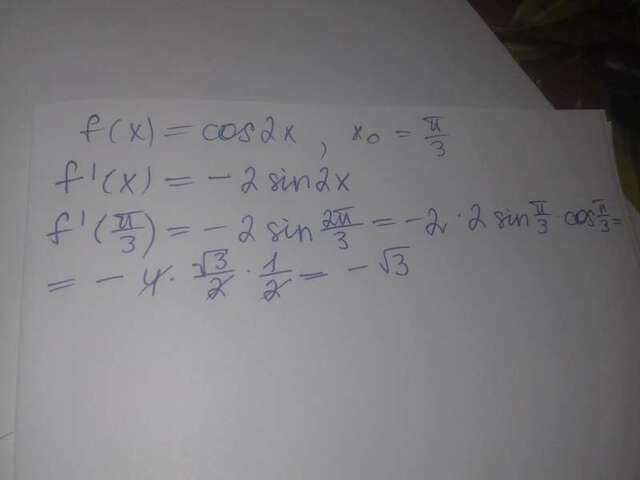 f(x) = cos2x, x₀ = π/3
f'(x) = - 2 sin2x
f'(π/3) = - 2 sin 2π/3 = - 2 · 2 sin π/3 · cos π/3 =
= - 4 · √3/2 · 1/2 = - √3